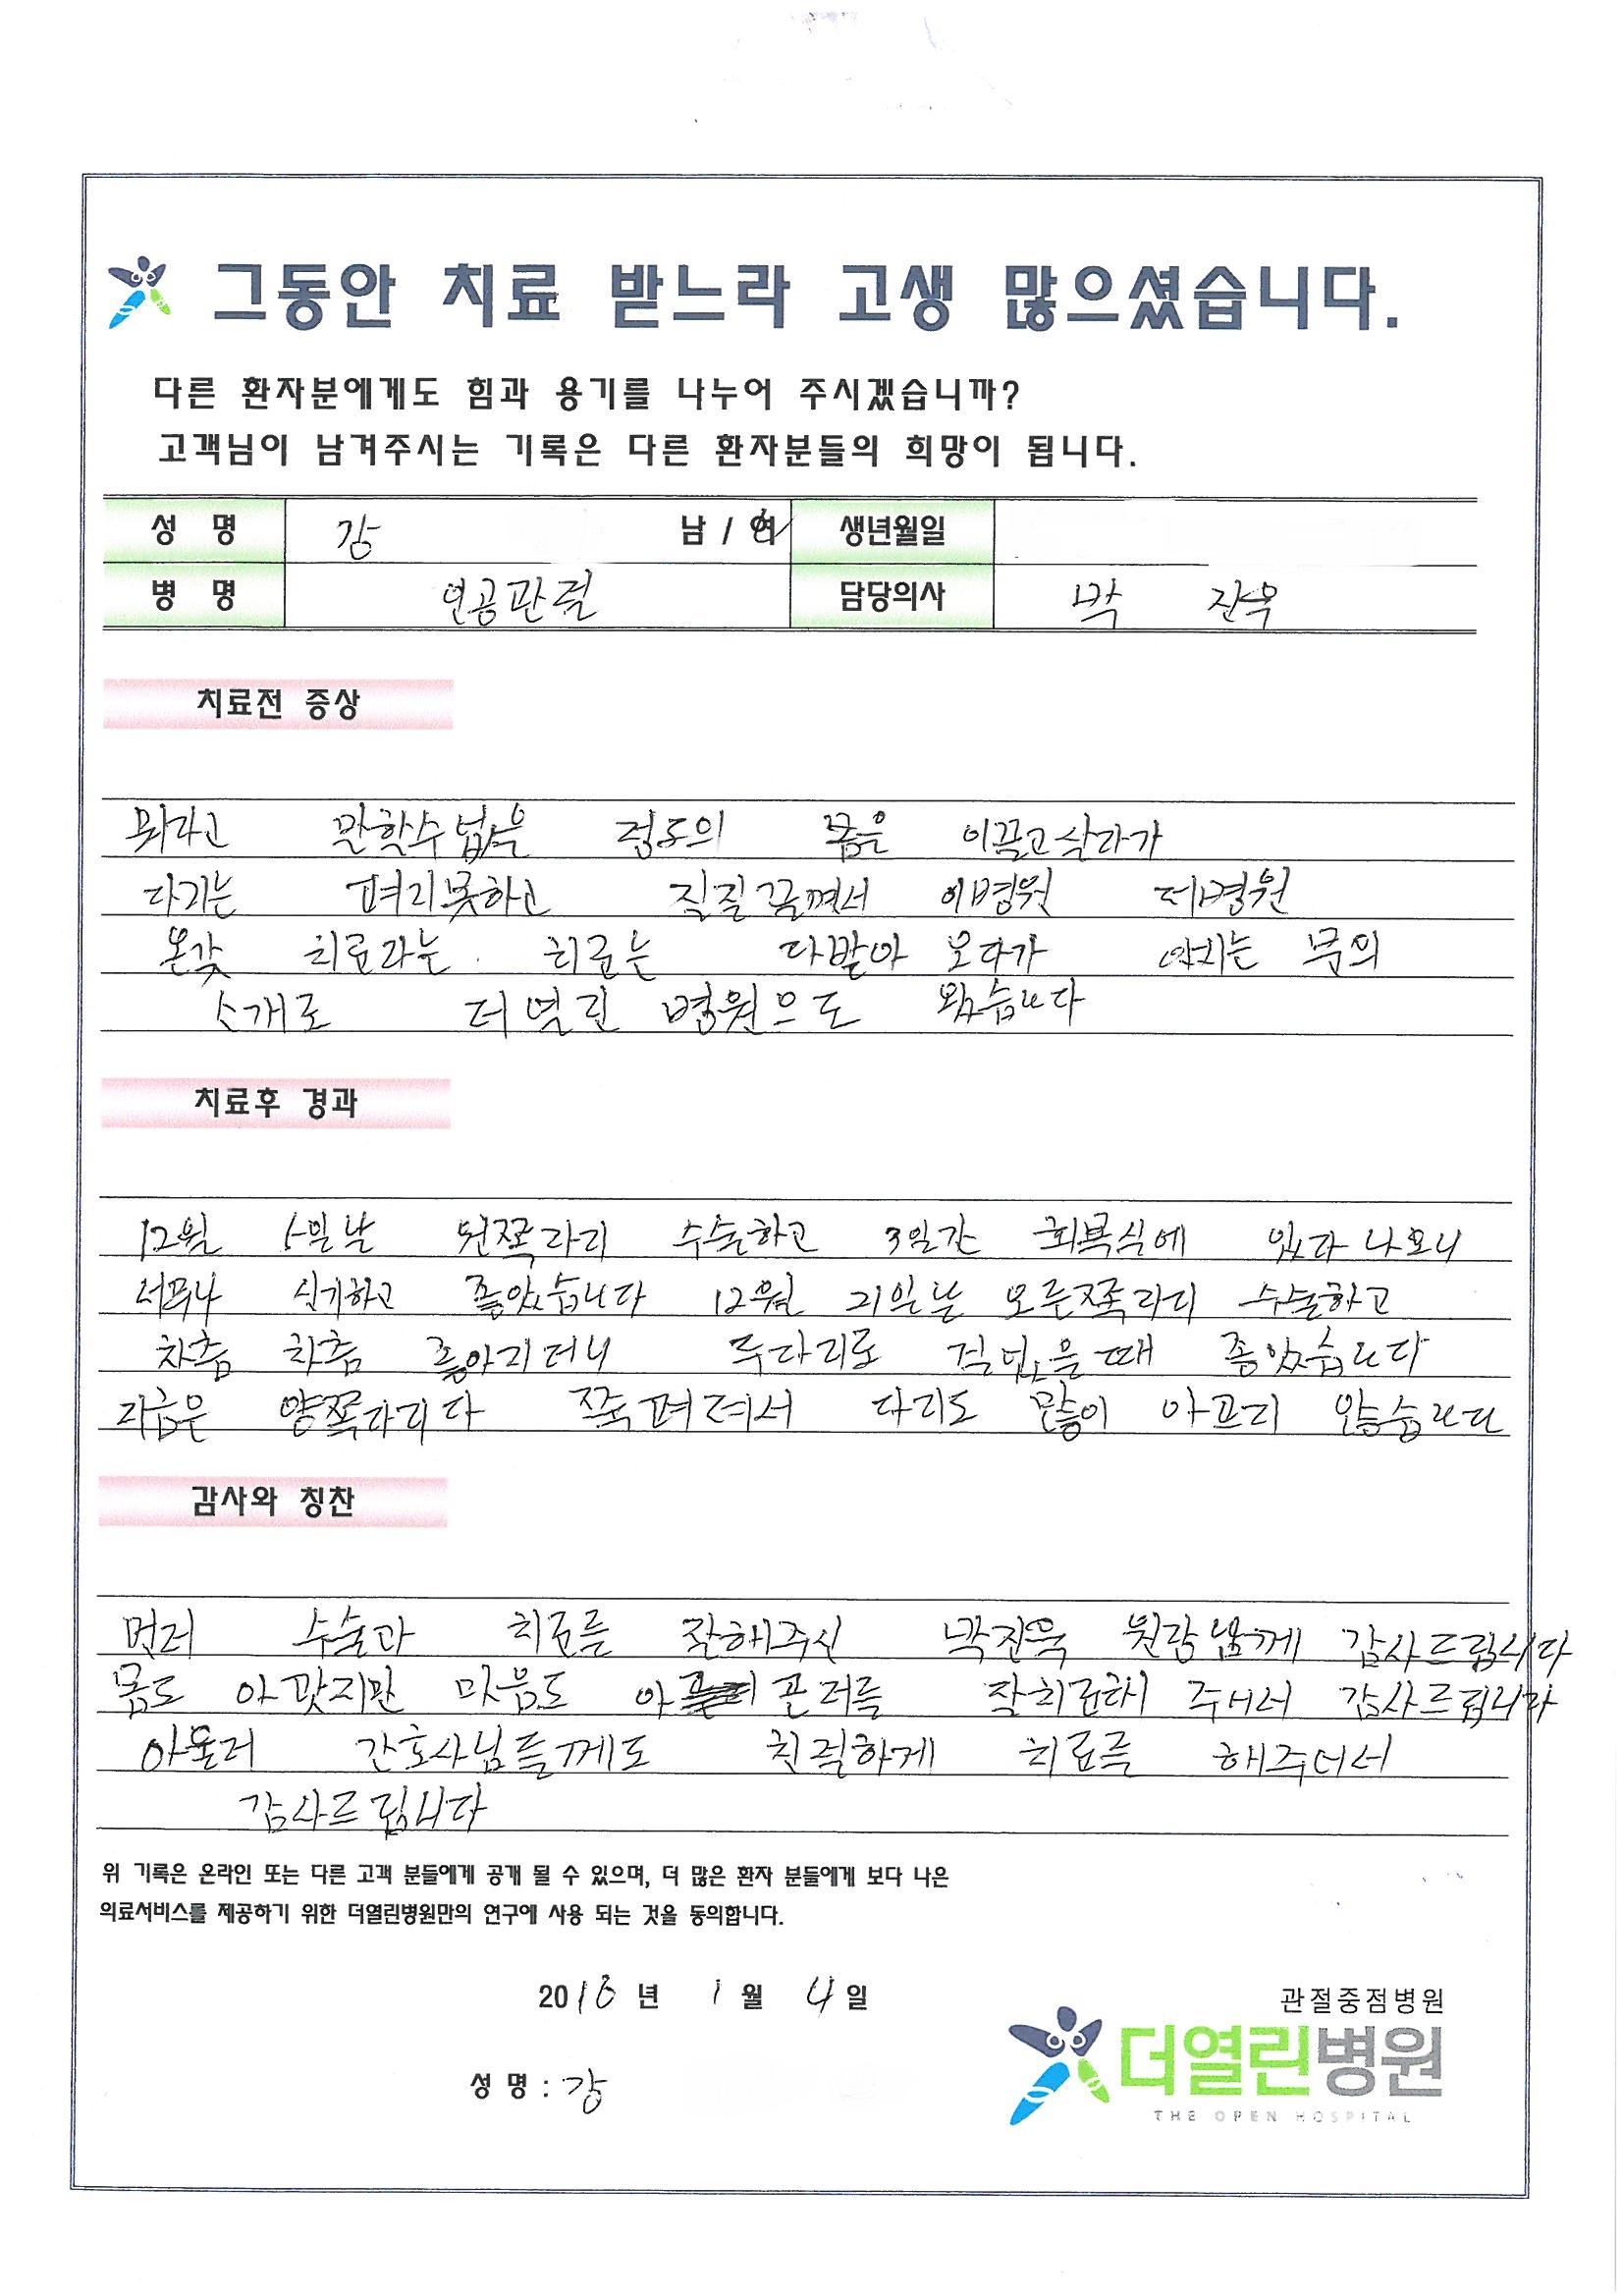 그동안 치료 받느라 고생 많으셨습니다.
다른 환자분에게도 힘과 용기를 나누어 주시겠습니까?
고객님이 남겨주시는 기록은 다른 환자분들의 희망이 됩니다.
성 명 강 남 / 여 생년월일
병 명 인공관절 담당의사 박 진욱
치료전 증상
뭐라고 말할수 없는 정도의 몸은 이끌고 살다가
다리는 펴리못하고 질질 끌며서 이병원 저병원
온갖 치료라는 치료는 다받아 오다가 아는 분의
소개로 더 열린 병원으로 왔습니다
치료후 경과
12월 5일날 왼쪽다리 수술하고 3일간 회복실에 있다 나오니
너무나 신기하고 좋았습니다 12월 21일날 오른쪽다리 수술하고
차츰 차츰 좋아지더니 두다리로 걸었을때 좋았습니다
지금은 양쪽다리다 쭉 펴져서 다리도 많이 아프지 않습니다
감사와 칭찬
먼저 수술과 치료를 잘해주신 박진욱 원장님께 감사드립니다
몸도 아팠지만 마음도 아픈 곳을 잘치료해 주셔서 감사드립니다
아울러 간호사님들께도 친절하게 치료를 해주셔서
감사드립니다
위 기록은 온라인 또는 다른 고객 분들에게 공개 될 수 있으며, 더 많은 환자 분들에게 보다 나은
의료서비스를 제공하기 위한 더열린병원만의 연구에 사용 되는 것을 동의합니다.
2016 년 1 월 4 일
관절중점병원
더열린병원
THE OPEN HOSPITAL
성 명 : 강